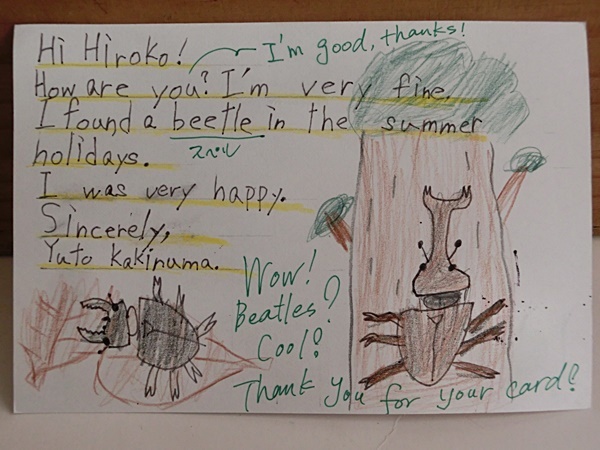 Hi Hiroko!
I'm good, thanks!
How are you? I'm very fine.
I found a beetle in the summer
スペル
holidays.
I was very happy.
Sincerely,
Yuto Kakinuma.
Wow!
Beatles?
Cool!
Thank you for your card!